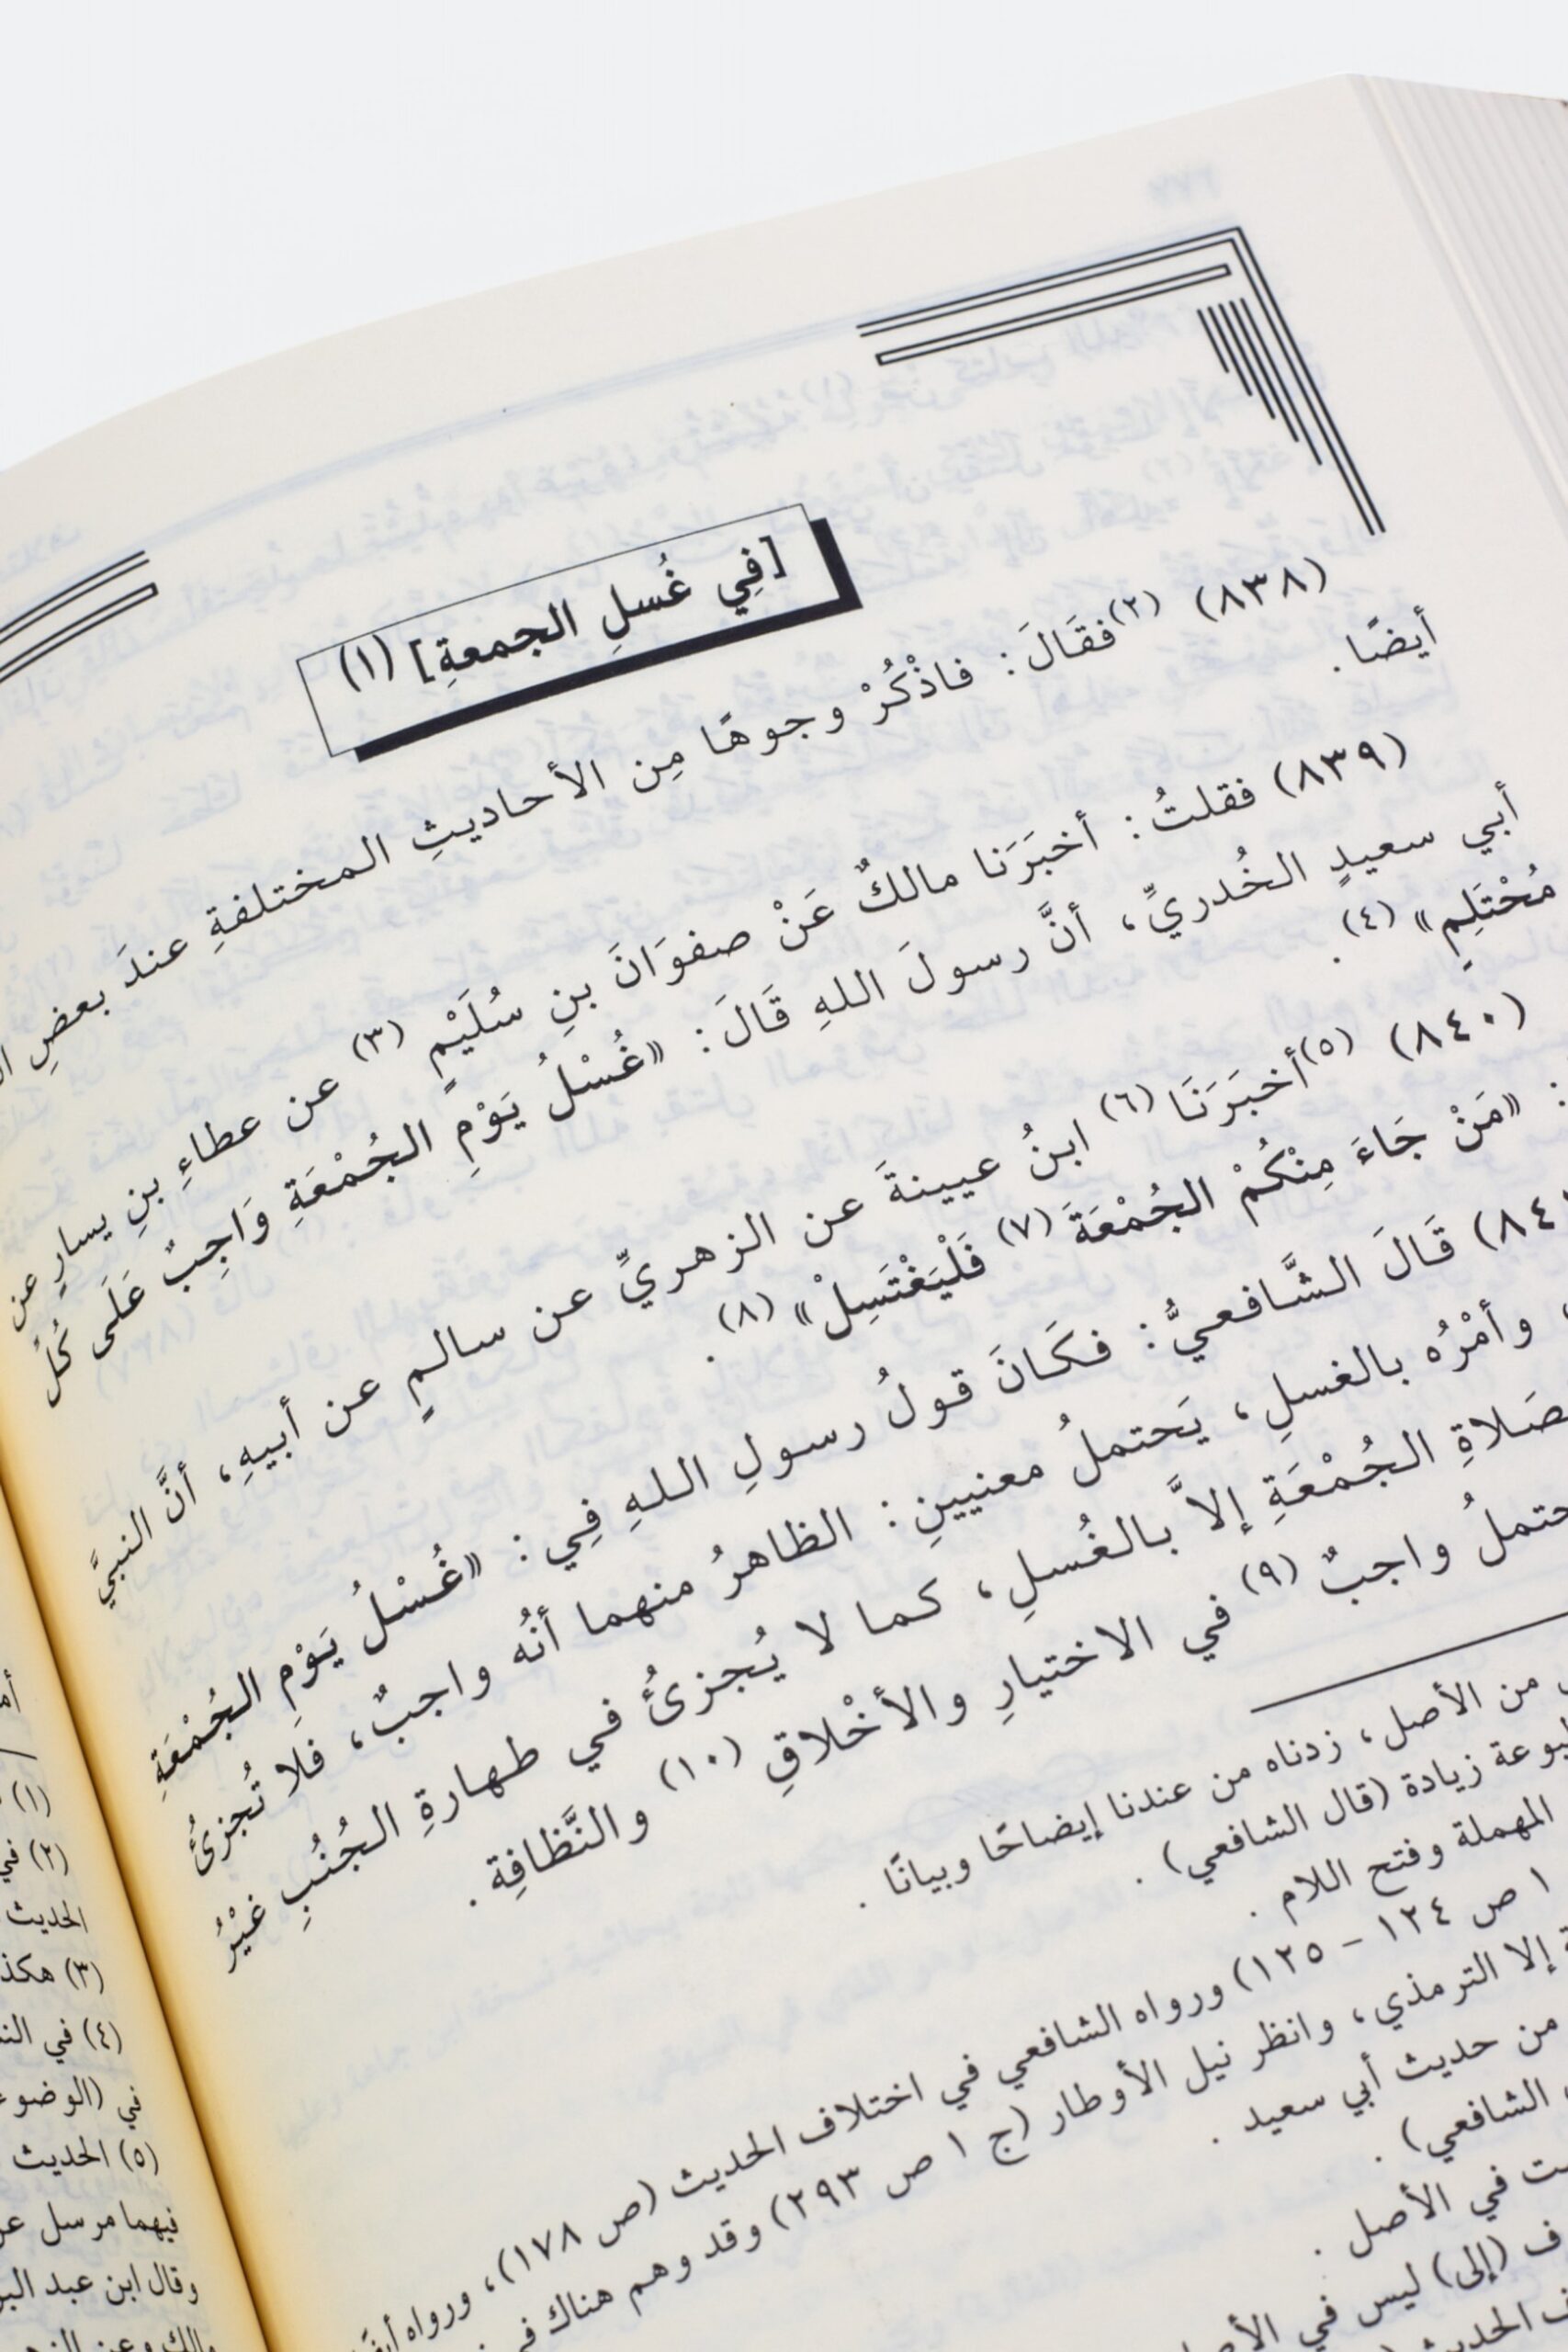 [فِي غُسلِ الجمعةِ] (١)
(٨٣٨) (٢)فقَالَ: فاذْكُرْ وجوهًا مِن الأحاديثِ المختلفةِ عندَ بعضِ
أيضًا.
(٨٣٩) فقلتُ: أخبَرَنا مالكٌ عَنْ صفوَانَ بنِ سُلَيْمٍ (٣) عن عطاءِ بنِ يسارٍ عن
أبي سعيدٍ الخُدريِّ، أنَّ رسولَ اللهِ قَالَ: «غُسْلُ يَوْمِ الجُمْعَةِ وَاجِبٌ عَلَى كُلِّ
مُحْتَلِمٍ» (٤).
(٨٤٠) (٥)أخبَرَنَا (٦) ابنُ عيينةَ عن الزهريِّ عن سالمٍ عن أبيهِ، أنَّ النبيَّ
: «مَنْ جَاءَ مِنْكُمْ الجُمْعَةَ (٧) فَلْيَغْتَسِلْ» (٨).
قَالَ الشَّافعيُّ: فكَانَ قولُ رسولِ اللهِ فِي: «غُسْلُ يَوْمِ الجُمْعَةِ
وأمْرُه بالغسلِ، يَحتملُ معنيينِ: الظاهرُ منهما أنُه واجبٌ، فلا تُجزئُ
الجُمْعَةِ إلاَّ بالغُسلِ، كما لا يُجزئُ في طهارةِ الجُنُبِ غيْرُ
واجبٌ (٩) في الاختيارِ والأخْلاقِ (١٠) والنَّظافةِ.
من الأصل، زدناه من عندنا إيضاحًا وبيانًا.
زيادة (قال الشافعي).
المهملة وفتح اللام.
١ ص ١٢٤ - ١٢٥) ورواه الشافعي في اختلاف الحديث (ص ١٧٨)، ورواه
إلا الترمذي، وانظر نيل الأوطار (ج ١ ص ٢٩٣) وقد وهم هناك
من حديث أبي سعيد.
الشافعي).
في الأصل.
(إلى) ليس في
الحديث
(١)
(٢) في
الحديث
(٣)
(٤) في
في (الوضوء
(٥) الحديث
فيهما مرسل
وقال ابن عبد البر